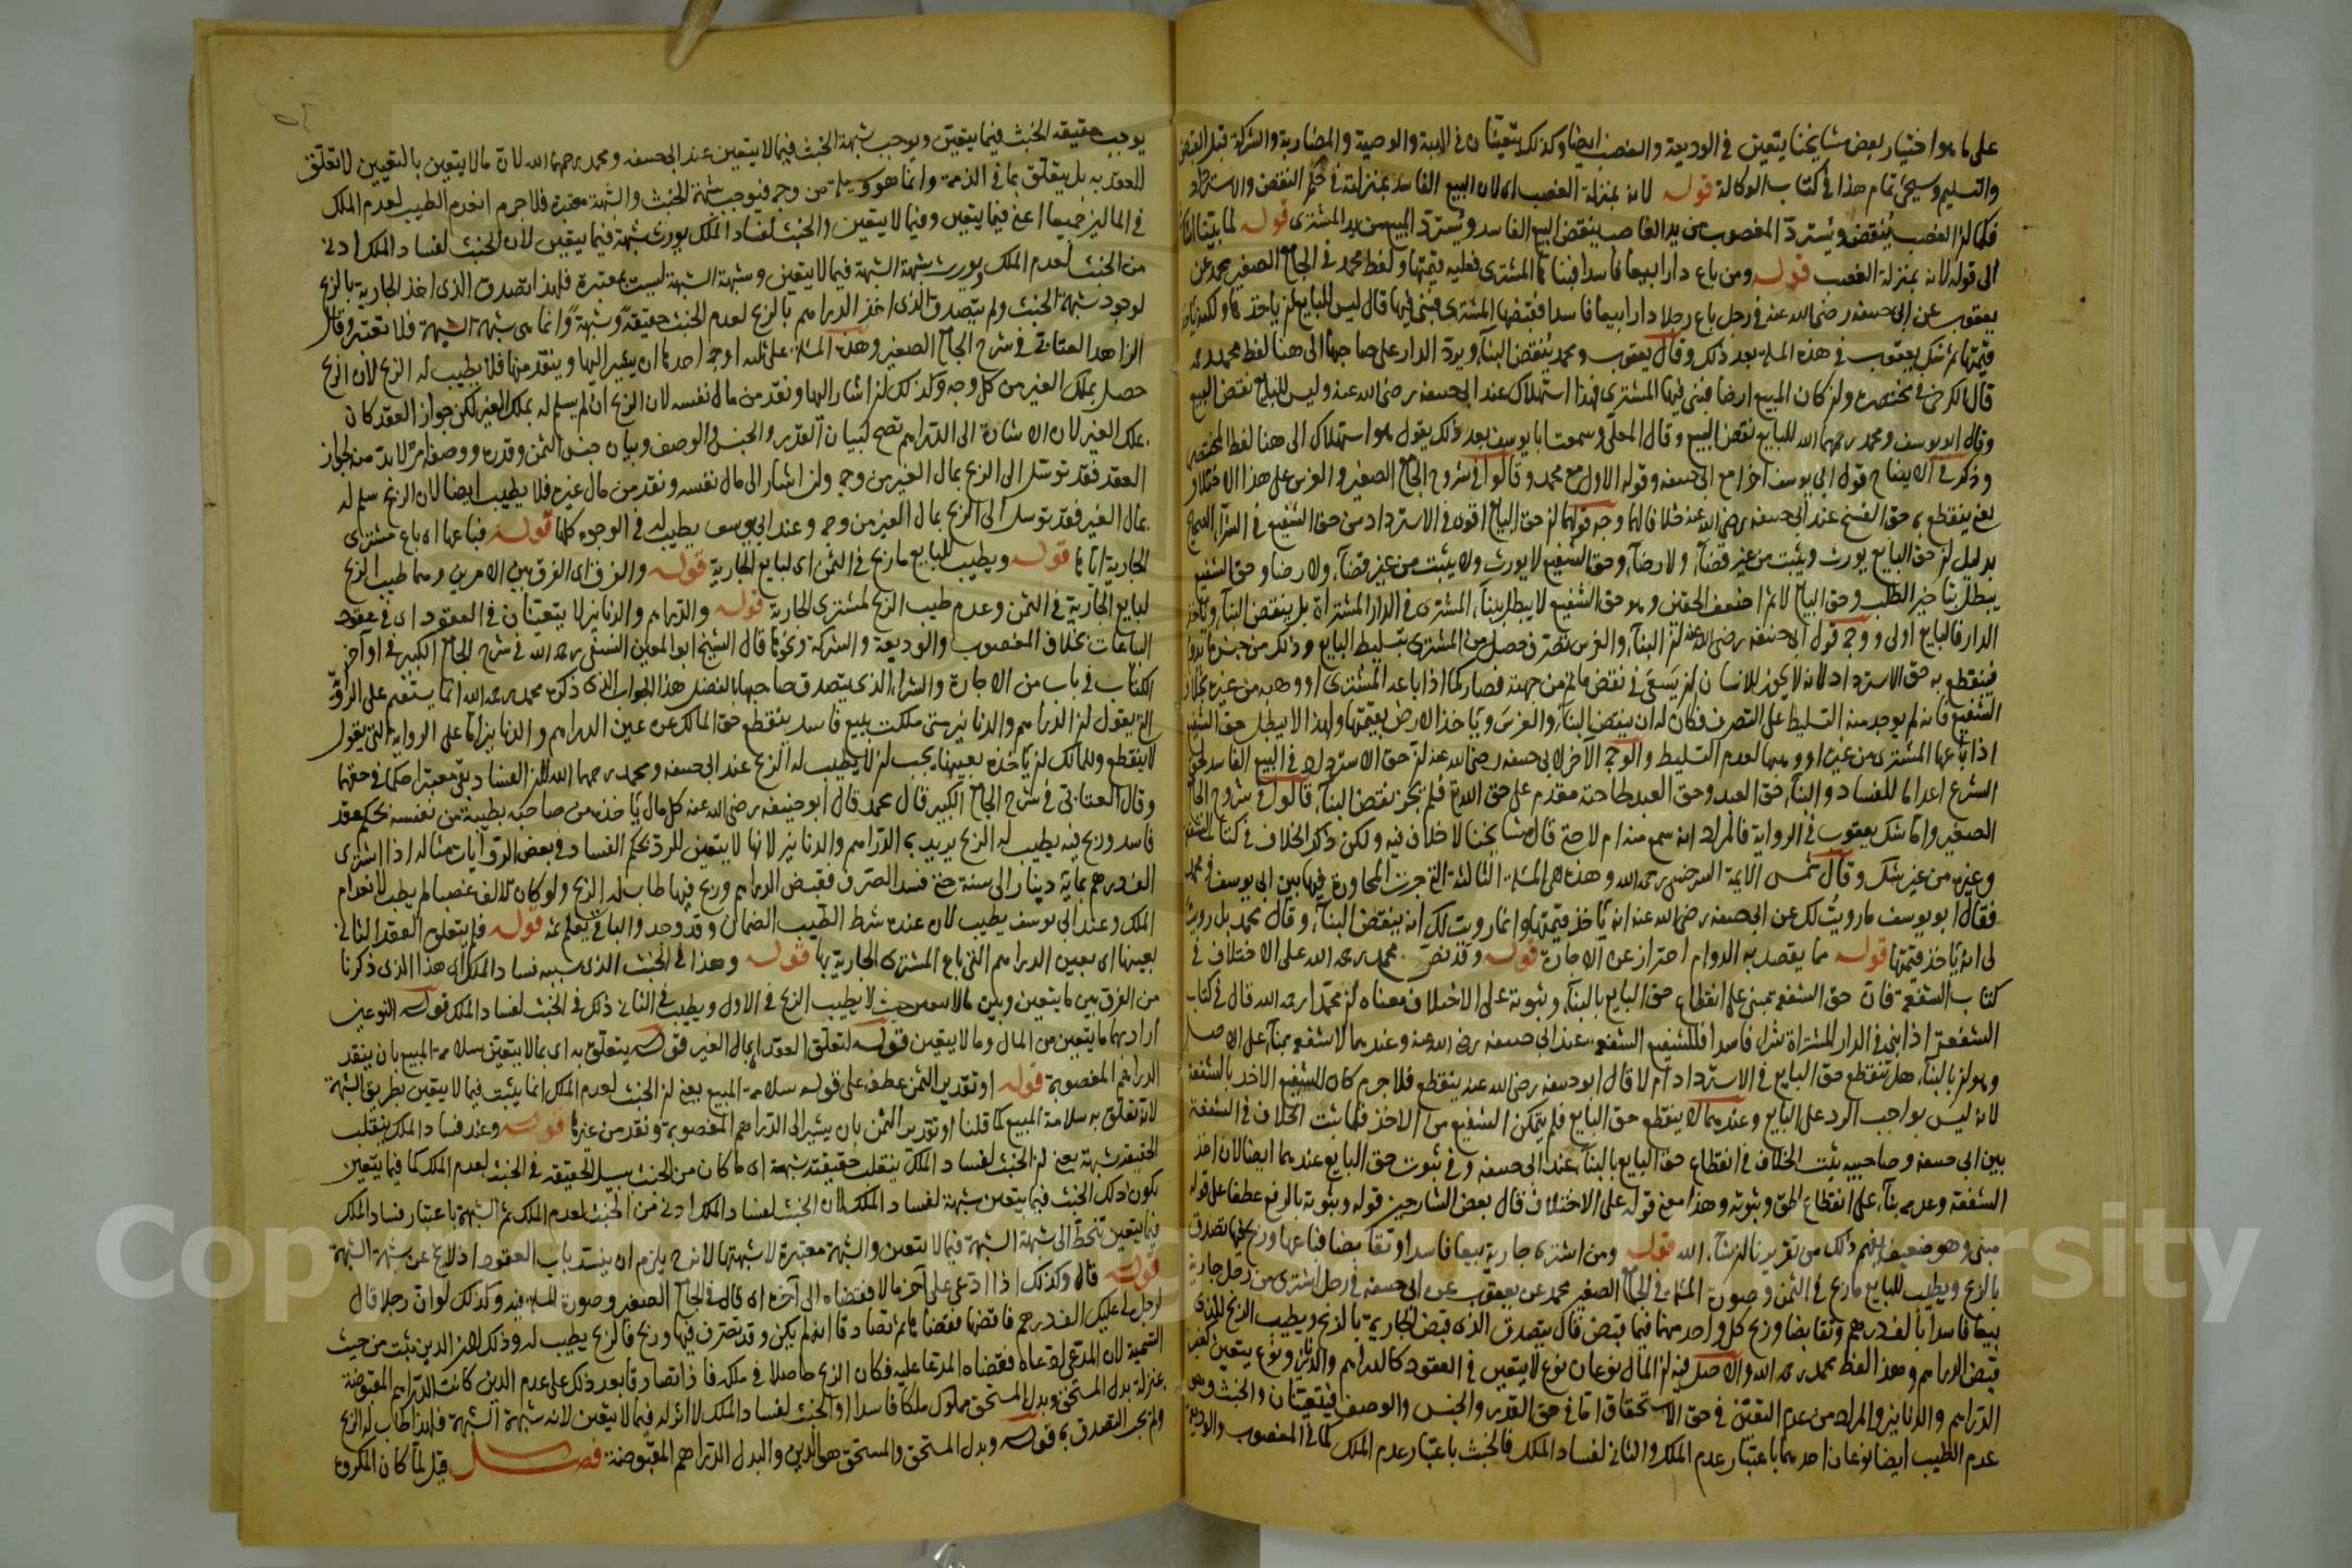 على ما هو اختيار بعض مشايخنا يتعين في الوديعة والغصب ايضا وكذلك يتعينان في الهبة والوصية والمضاربة والشركة قبل القبض
والتسليم وسيجئ تمام هذا في كتاب الوكالة قوله لانه بمنزلة الغصب اى لان البيع الفاسد بمنزلته في حكم النقض والاسترداد
فكما ان الغصب ينقض ويسترد المغصوب من يد الغاصب ينقض البيع الفاسد ويسترد المبيع من يد المشترى قوله لما بينا
الى قوله لانه بمنزلة الغصب قوله ومن باع دارا بيعا فاسدا فبناها المشترى فعليه قيمتها ولفظ محمد في الجامع الصغير محمد عن
يعقوب عن ابى حنيفه رضى الله عنه في رجل باع رجلا دارا بيعا فاسدا فقبضها المشترى فبنى فيها قال ليس للبايع ان ياخذها ولكنه ياخذ
قيمتها ثم شك يعقوب في هذه المسئلة بعد ذلك وقال يعقوب ومحمد ينقض البناء ويرد الدار على صاحبها الى هنا لفظ محمد
قال الكرخى في مختصره وان كان المبيع ارضا فبنى فيها المشترى فهذا استهلاك عند ابى حنيفه رضى الله عنه وليس للبايع نقض البيع
وقال ابو يوسف ومحمد رحمهما الله للبايع نقض البيع وقال المعلى وسمعت ابا يوسف بعد ذلك يقول هو استهلاك الى هنا لفظ المختصر
وذكر في الايضاح قول ابى يوسف اخرا مع ابى حنيفه وقوله الاول مع محمد وقالوا في شروح الجامع الصغير والغرس على هذا الاختلاف
يعنى ينقطع به حق الفسخ عند ابى حنيفه رضى الله عنه خلافا لهما وجه قولهما ان حق البايع اقوى في الاسترداد من حق الشفيع في الشراء الصحيح
بدليل ان حق البايع يورث ويثبت من غير قضاء ولا رضاء وحق الشفيع لا يورث ولا يثبت من غير قضاء ولا رضا وحق الشفيع
يبطل بتاخير الطلب وحق البايع لا ثم اضعف الحقين وهو حق الشفيع لا يبطل ببناء المشترى في الدار المشتراة بل ينقض البناء
الدار فالبايع اولى ووجه قول ابى حنيفه رضى الله عنه ان البناء والغرس تصرف حصل من المشترى بتسليط البايع وذلك من جنس
فينقطع به حق الاسترداد لانه لا يجوز للانسان ان يسعى في نقض ما تم من جهته فصار كما اذا باعه المشترى او وهبه من غيره بخلاف
الشفيع فانه لم يوجد منه التسليط على التصرف فكان له ان ينقض البناء والغرس وياخذ الارض بقيمتها ولهذا لا يبطل حق الشفيع
اذا باعها المشترى من غيره او وهبها لعدم التسليط والوجه الآخر لابى حنيفه رضى الله عنه ان حق الاسترداد في البيع الفاسد لحق
الشرع اعداما للفساد والبناء حق العبد وحق العبد لحاجته مقدم على حق الله فلم يجز نقض البناء قالوا في شروح الجامع
الصغير وانما شك يعقوب في الرواية فالمراد انه سمع منه ام لا حتى قال مشايخنا لا خلاف فيه ولكن ذكر الخلاف في كتاب الشفعة
وغيره من غير شك وقال شمس الايمة السرخسى رحمه الله وهذه هى المسئلة الثالثة التى جرت المحاورة فيها بين ابى يوسف ومحمد
فقال ابو يوسف ما رويت لك عن ابى حنيفه رضى الله عنه انه ياخذ قيمتها وانما رويت لك انه ينقض البناء وقال محمد بل رويت
لى انه ياخذ قيمتها قوله مما يقصد به الدوام احتراز عن الاجارة قوله وقد نص محمد رحمه الله على الاختلاف في
كتاب الشفعة فان حق الشفعة مبنى على انقطاع حق البايع بالبناء وثبوته على الاختلاف معناه ان محمدا رحمه الله قال في كتاب
الشفعة اذا بنى في الدار المشتراة شراء فاسدا فللشفيع الشفعة عند ابى حنيفه رضى الله عنه وعندهما لا شفعة بناء على الاصل
وهو ان بالبناء هل ينقطع حق البايع في الاسترداد ام لا قال ابو حنيفه رضى الله عنه ينقطع فلا جرم كان للشفيع الاخذ بالشفعة
لانه ليس بواجب الرد على البايع وعندهما لا ينقطع حق البايع فلم يتمكن الشفيع من الاخذ فلما ثبت الخلاف في الشفعة
بين ابى حنيفه وصاحبيه يثبت الخلاف في انقطاع حق البايع بالبناء عند ابى حنيفه وفي ثبوت حق البايع عندهما ايضا لان اخذ
الشفعة وعدمه بناء على انقطاع الحق وثبوته وهذا معنى قوله على الاختلاف قال بعض الشارحين قوله وثبوته بالرفع عطفا على قوله
مبنى وهو ضعيف يفهم ذلك من تقريرنا ان شاء الله قوله ومن اشترى جارية بيعا فاسدا وتقابضا فباعها وربح فيها تصدق
بالربح ويطيب للبايع ما ربح في الثمن وصورة المسئلة في الجامع الصغير محمد عن يعقوب عن ابى حنيفه في رجل اشترى من رجل جارية
بيعا فاسدا بالف درهم وتقابضا وربح كل واحد منهما فيما قبض قال يتصدق الذى قبض الجارية بالربح ويطيب الربح للذى
قبض الدراهم وهذا لفظ محمد رحمه الله والاصل فيه ان المال نوعان نوع لا يتعين في العقود كالدراهم والدنانير ونوع يتعين كغير
الدراهم والدنانير والمراد من عدم التعين في حق الاستحقاق اما في حق القدر والجنس والوصف فيتعينان والخبث وهو
عدم الطيب ايضا نوعان احدهما باعتبار عدم الملك والثانى لفساد الملك فالخبث باعتبار عدم الملك كما في المغصوب والوديعة
يوجب حقيقة الخبث فيما يتعين ويوجب شبهة الخبث فيما لا يتعين عند ابى حنيفه ومحمد رحمهما الله لان مالا يتعين بالتعيين لا تعلق
للعقد به بل يتعلق بما في الذمة وانما هو وسيلة من وجه فيوجب شبهة الخبث والشبهة معتبرة فلا جرم انعدم الطيب لعدم الملك
في المالين جميعا اعنى فيما يتعين وفيما لا يتعين والخبث لفساد الملك يورث شبهة فيما يتعين لان الخبث لفساد الملك ادنى
من الخبث لعدم الملك ويورث شبهة الشبهة فيما لا يتعين وشبهة الشبهة ليست بمعتبرة فلهذا تصدق الذى اخذ الجارية بالربح
لوجود شبهة الخبث ولم يتصدق الذى اخذ الدراهم بالربح لعدم الخبث حقيقة وشبهة وانما هى شبهة الشبهة فلا تعتبر وقال
الزاهد العتابى في شرح الجامع الصغير وهذه المسئلة على ثلثة اوجه احدها ان يشير اليها وينقد منها فلا يطيب له الربح لان الربح
حصل بملك الغير من كل وجه وكذلك ان اشار اليها ونقد من مال نفسه لان الربح ان لم يسلم له بملك الغير لكن جواز العقد كان
بملك الغير لان الاشارة الى الدراهم تصح لبيان القدر والجنس والوصف وبيان جنس الثمن وقدره ووصفه امر لابد منه لجواز
العقد فقد توسل الى الربح بمال الغير من وجه وان اشار الى مال نفسه ونقد من مال غيره فلا يطيب ايضا لان الربح سلم له
بمال الغير فقد توسل الى الربح بمال الغير من وجه وعند ابى يوسف يطيب له في الوجوه كلها قوله فباعها اى باع مشترى
الجارية اياها قوله ويطيب للبايع ما ربح في الثمن اى لبايع الجارية قوله والفرق اى الفرق بين الامرين وهما طيب الربح
لبايع الجارية في الثمن وعدم طيب الربح لمشترى الجارية قوله والدراهم والدنانير لا يتعينان في العقود اى في عقود
البياعات بخلاف المغصوب والوديعة والشركة ونحوها قال الشيخ ابو المعين النسفى رحمه الله في شرح الجامع الكبير في اواخر
الكتاب في باب من الاجارة والشراء الذى يتصدق صاحبها بالفضل هذا الجواب الذى ذكره محمد رحمه الله انما يستقيم على الرواية
التى يقول ان الدراهم والدنانير متى ملكت ببيع فاسد ينقطع حق المالك عن عين الدراهم والدنانير اما على الرواية التى يقول
لا ينقطع وللمالك ان ياخذه بعينها يجب ان لا يطيب له الربح عند ابى حنيفه ومحمد رحمهما الله لان الفساد بقى معتبرا حكما في حقها
وقال العتابى في شرح الجامع الكبير قال محمد قال ابو حنيفه رضى الله عنه كل مال ياخذه من صاحبه بطيبة من نفسه بحكم عقد
فاسد وربح فيه يطيب له الربح يريد به الدراهم والدنانير لانها لا يتعين للرد بحكم الفساد في بعض الروايات مثاله اذا اشترى
الف درهم بماية دينار الى سنة حتى فسد الصرف فقبض الدراهم وربح فيها طاب له الربح ولو كان الالف غصبا لم يطب لانعدام
الملك وعند ابى يوسف يطيب لان عنده شرط الطيب الضمان وقد وجد والباقى يعلم ثمه قوله فلم يتعلق العقد الثانى
بعينها اى بعين الدراهم التى باع المشترى الجارية بها قوله وهذا في الخبث الذى سببه فساد الملك اى هذا الذى ذكرنا
من الفرق بين ما يتعين وبين مالا يتعين حيث لا يطيب الربح في الاول ويطيب في الثانى ذلك في الخبث لفساد الملك قوله النوعين
اراد بهما ما يتعين من المال وما لا يتعين قوله لتعلق العقد بمال الغير قوله يتعلق به اى بمالا يتعين سلامة المبيع بان ينقد
الدراهم المغصوبة قوله او تقدير الثمن عطف على قوله سلامة المبيع يعنى ان الخبث لعدم الملك انما يثبت فيما لا يتعين بطريق الشبهة
لانه تعلق به سلامة المبيع كما قلنا او تقدير الثمن بان يشير الى الدراهم المغصوبة ونقد من غيرها قوله وعند فساد الملك ينقلب
الحقيقة شبهة يعنى ان الخبث لفساد الملك ينقلب حقيقته شبهة اى ما كان من الخبث بسبيل الحقيقه في الخبث لعدم الملك كما فيما يتعين
يكون ذلك الخبث فيما يتعين شبهة لفساد الملك لان الخبث لفساد الملك ادنى من الخبث لعدم الملك ثم الشبهة باعتبار فساد الملك
فيما يتعين تنحط الى شبهة الشبهة فيما لا يتعين والشبهة معتبرة لا شبهتها لانه ح يلزم ان ينسد باب العقود اذ لا يخ عن شبهة الشبهة
قوله قال وكذلك اذا ادعى على آخر مالا فقضاه الى آخره اى قال في الجامع الصغير وصورة المسئلة فيه وكذلك لو ان رجلا قال
لرجل لى عليك الف درهم فاقضها فقضاها ثم تصادقا انه لم يكن وقد تصرف فيها وربح فالربح يطيب له وذلك لان الدين ثبت من حيث
التسمية لان المدعى لما ادعاه فقضاه المدعا عليه فكان الربح حاصلا في ملكه فاذا تصادقا بعد ذلك على عدم الدين كانت الدراهم المقبوضة
بمنزلة بدل المستحق وبدل المستحق مملوك ملكا فاسدا والخبث لفساد الملك لا اثر له فيما لا يتعين لانه شبهة الشبهة فلهذا طاب له الربح
ولم يجب التصدق به قوله وبدل المستحق والمستحق هو الدين والبدل الدراهم المقبوضة فصل قيل لما كان المكروه